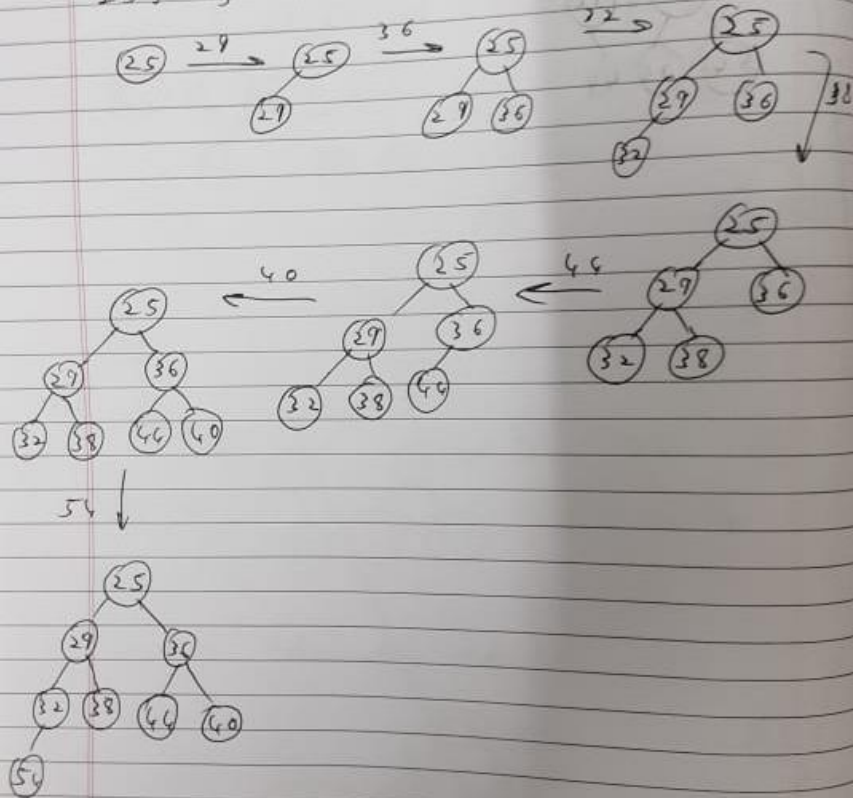 25 29 25 36 25 32 25
29 29 36 29 36 38
32
25 40 25 44 25
29 36 29 36 29 36
32 38 44 40 32 38 44 32 38
54
25
29 36
32 38 44 40
54